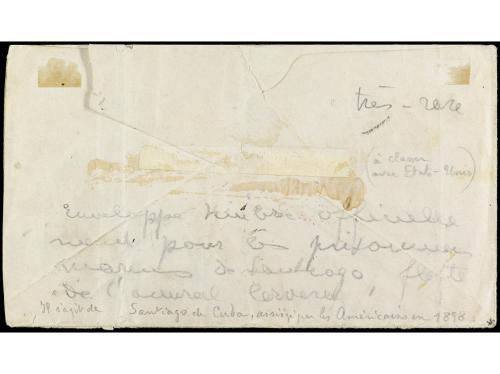 très - rare
à classer
avec Etats-Unis)
Enveloppe timbre officielle
pour les prisonniers
marins de Santiago, flotte
de l'amiral Cervera,
Il s'agit de Santiago de Cuba, assiégé par les Américains en 1898